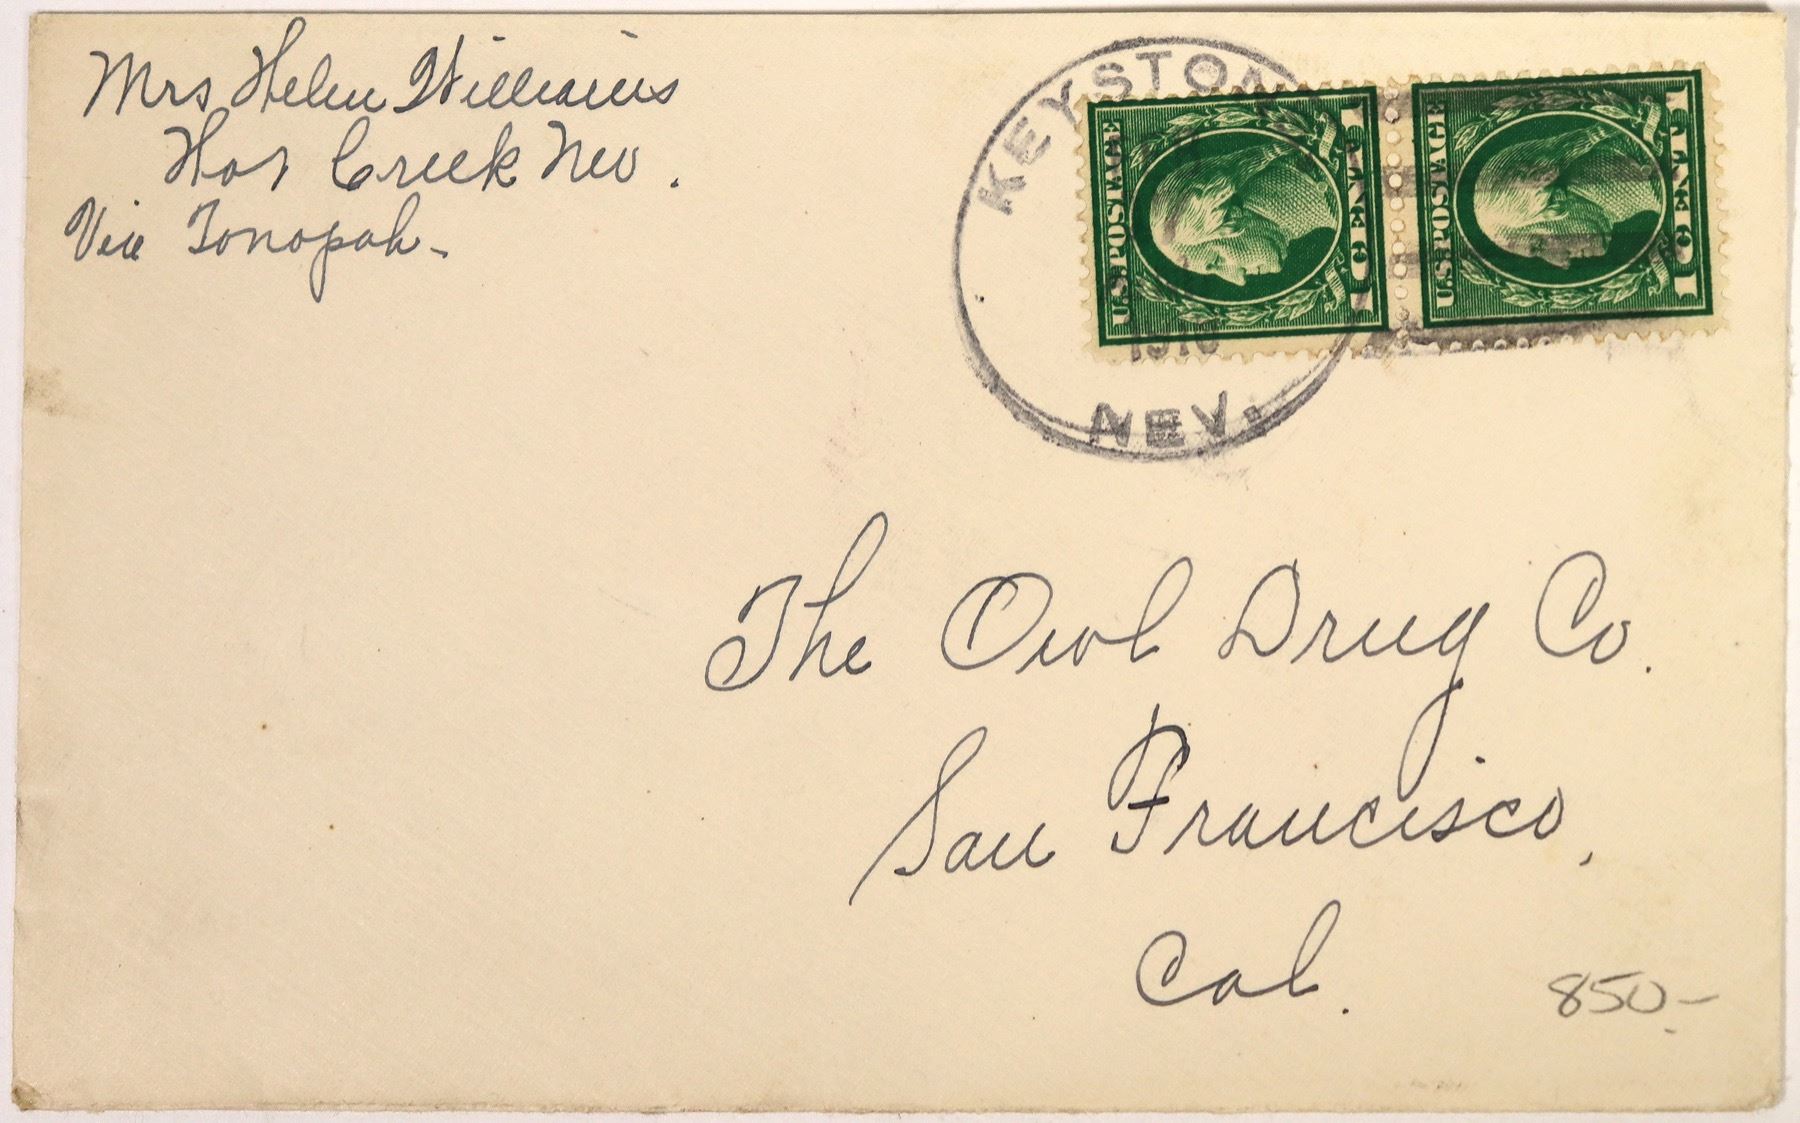 Mrs Helen Williams
Hot Creek Nev.
Via Tonopah-
KEYSTON
NEV.
U.S. POSTAGE
1 CENT 1
U.S. POSTAGE
1 CENT 1
The Owl Drug Co.
San Francisco,
Cal.
850.-